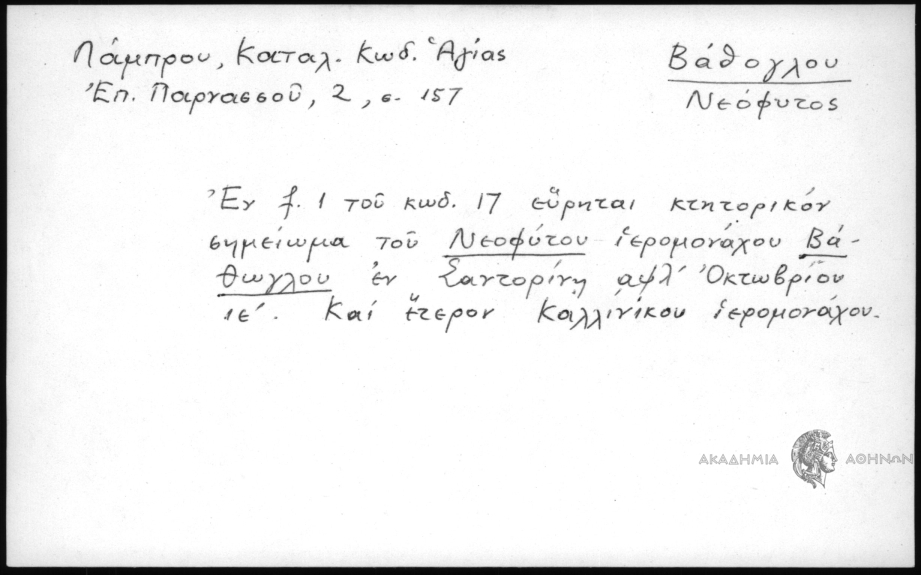 Λάμπρου, Καταλ. Κωδ. Ἁγίας
Ἐπ. Παρνασσοῦ, 2, σ. 157
Βάθογλου
Νεόφυτος
Ἐν f. 1 τοῦ κωδ. 17 εὕρηται κτητορικόν
σημείωμα τοῦ Νεοφύτου ἱερομονάχου Βά-
θωγλου ἐν Σαντορίνῃ αψλ´ Ὀκτωβρίου
ιε´. Καί ἕτερον Καλλινίκου ἱερομονάχου.
ΑΚΑΔΗΜΙΑ ΑΘΗΝΩΝ